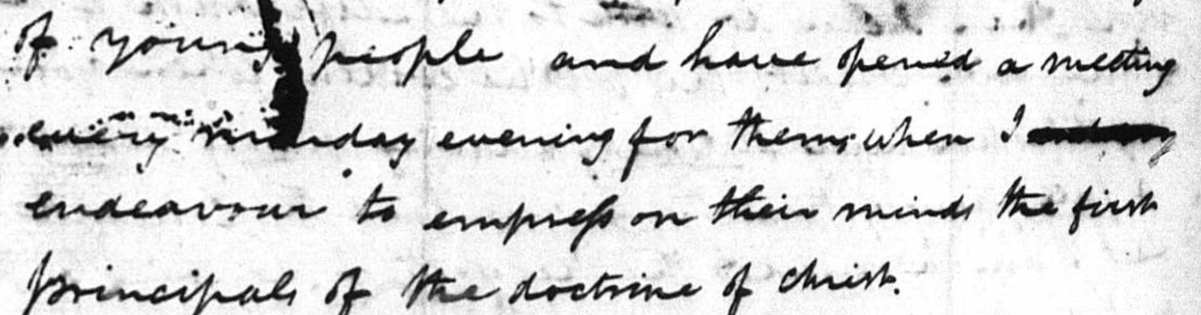 of young people and have opened a meeting
every monday evening for them, when I
endeavour to empress on their minds the first
principals of the doctrine of christ.